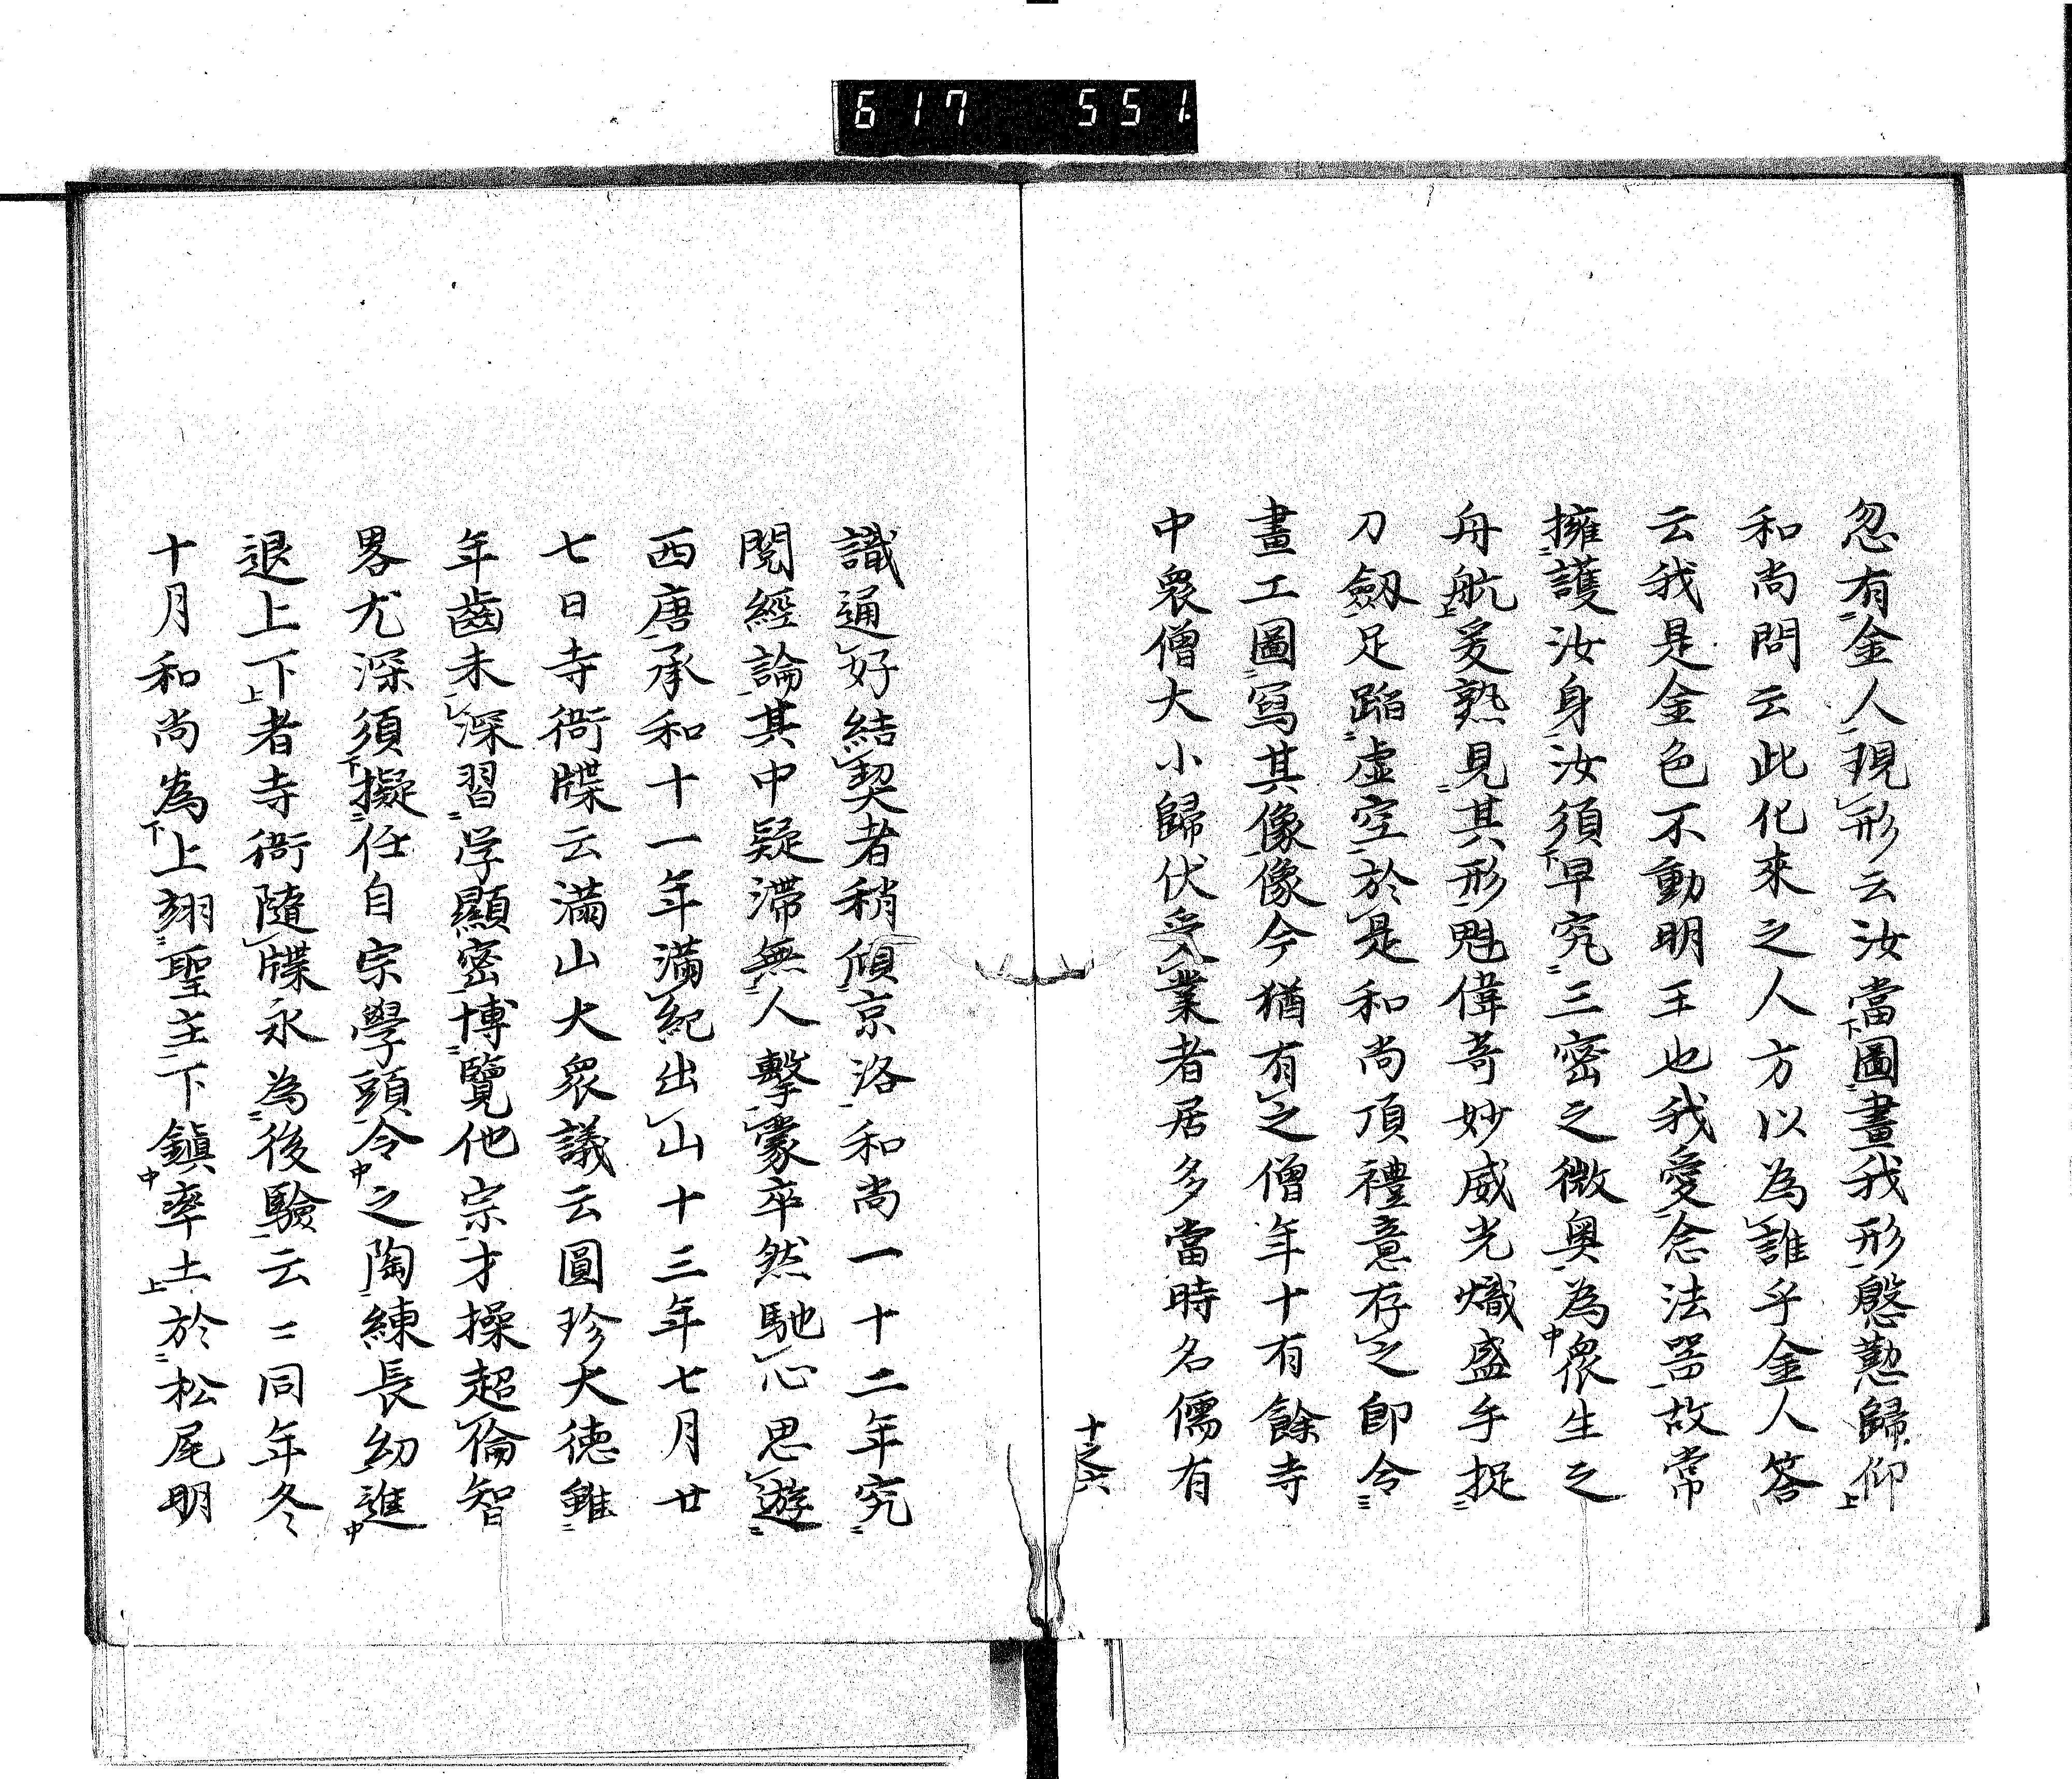 617 551.
忽有金人現形云汝當圖畫我形慇懃歸仰
和尚問云此化來之人方以為誰乎金人答
云我是金色不動明王也我愛念法器故常
擁護汝身汝須早究三密之微奧為衆生之
舟航爰熟見其形魁偉奇妙威光熾盛手捉
刀劔足蹈虛空於是和尚頂禮意存之即令
畫工圖寫其像像今猶有之僧年十有餘寺
中衆僧大小歸伏受業者居多當時名儒有
十之六
識通好結契者稍傾京洛和尚一十二年究
閱經論其中疑滯無人擊蒙卒然馳心思遊
西唐承和十一年滿紀出山十三年七月廿
七日寺衙牒云滿山大衆議云圓珍大徳雖
年齒未深習学顯密博覽他宗才操超倫智
畧尤深須擬任自宗學頭令之陶練長幼進
退上下者寺衙隨牒永為後驗云〻同年冬
十月和尚為上翊聖主下鎮率土於松尾明